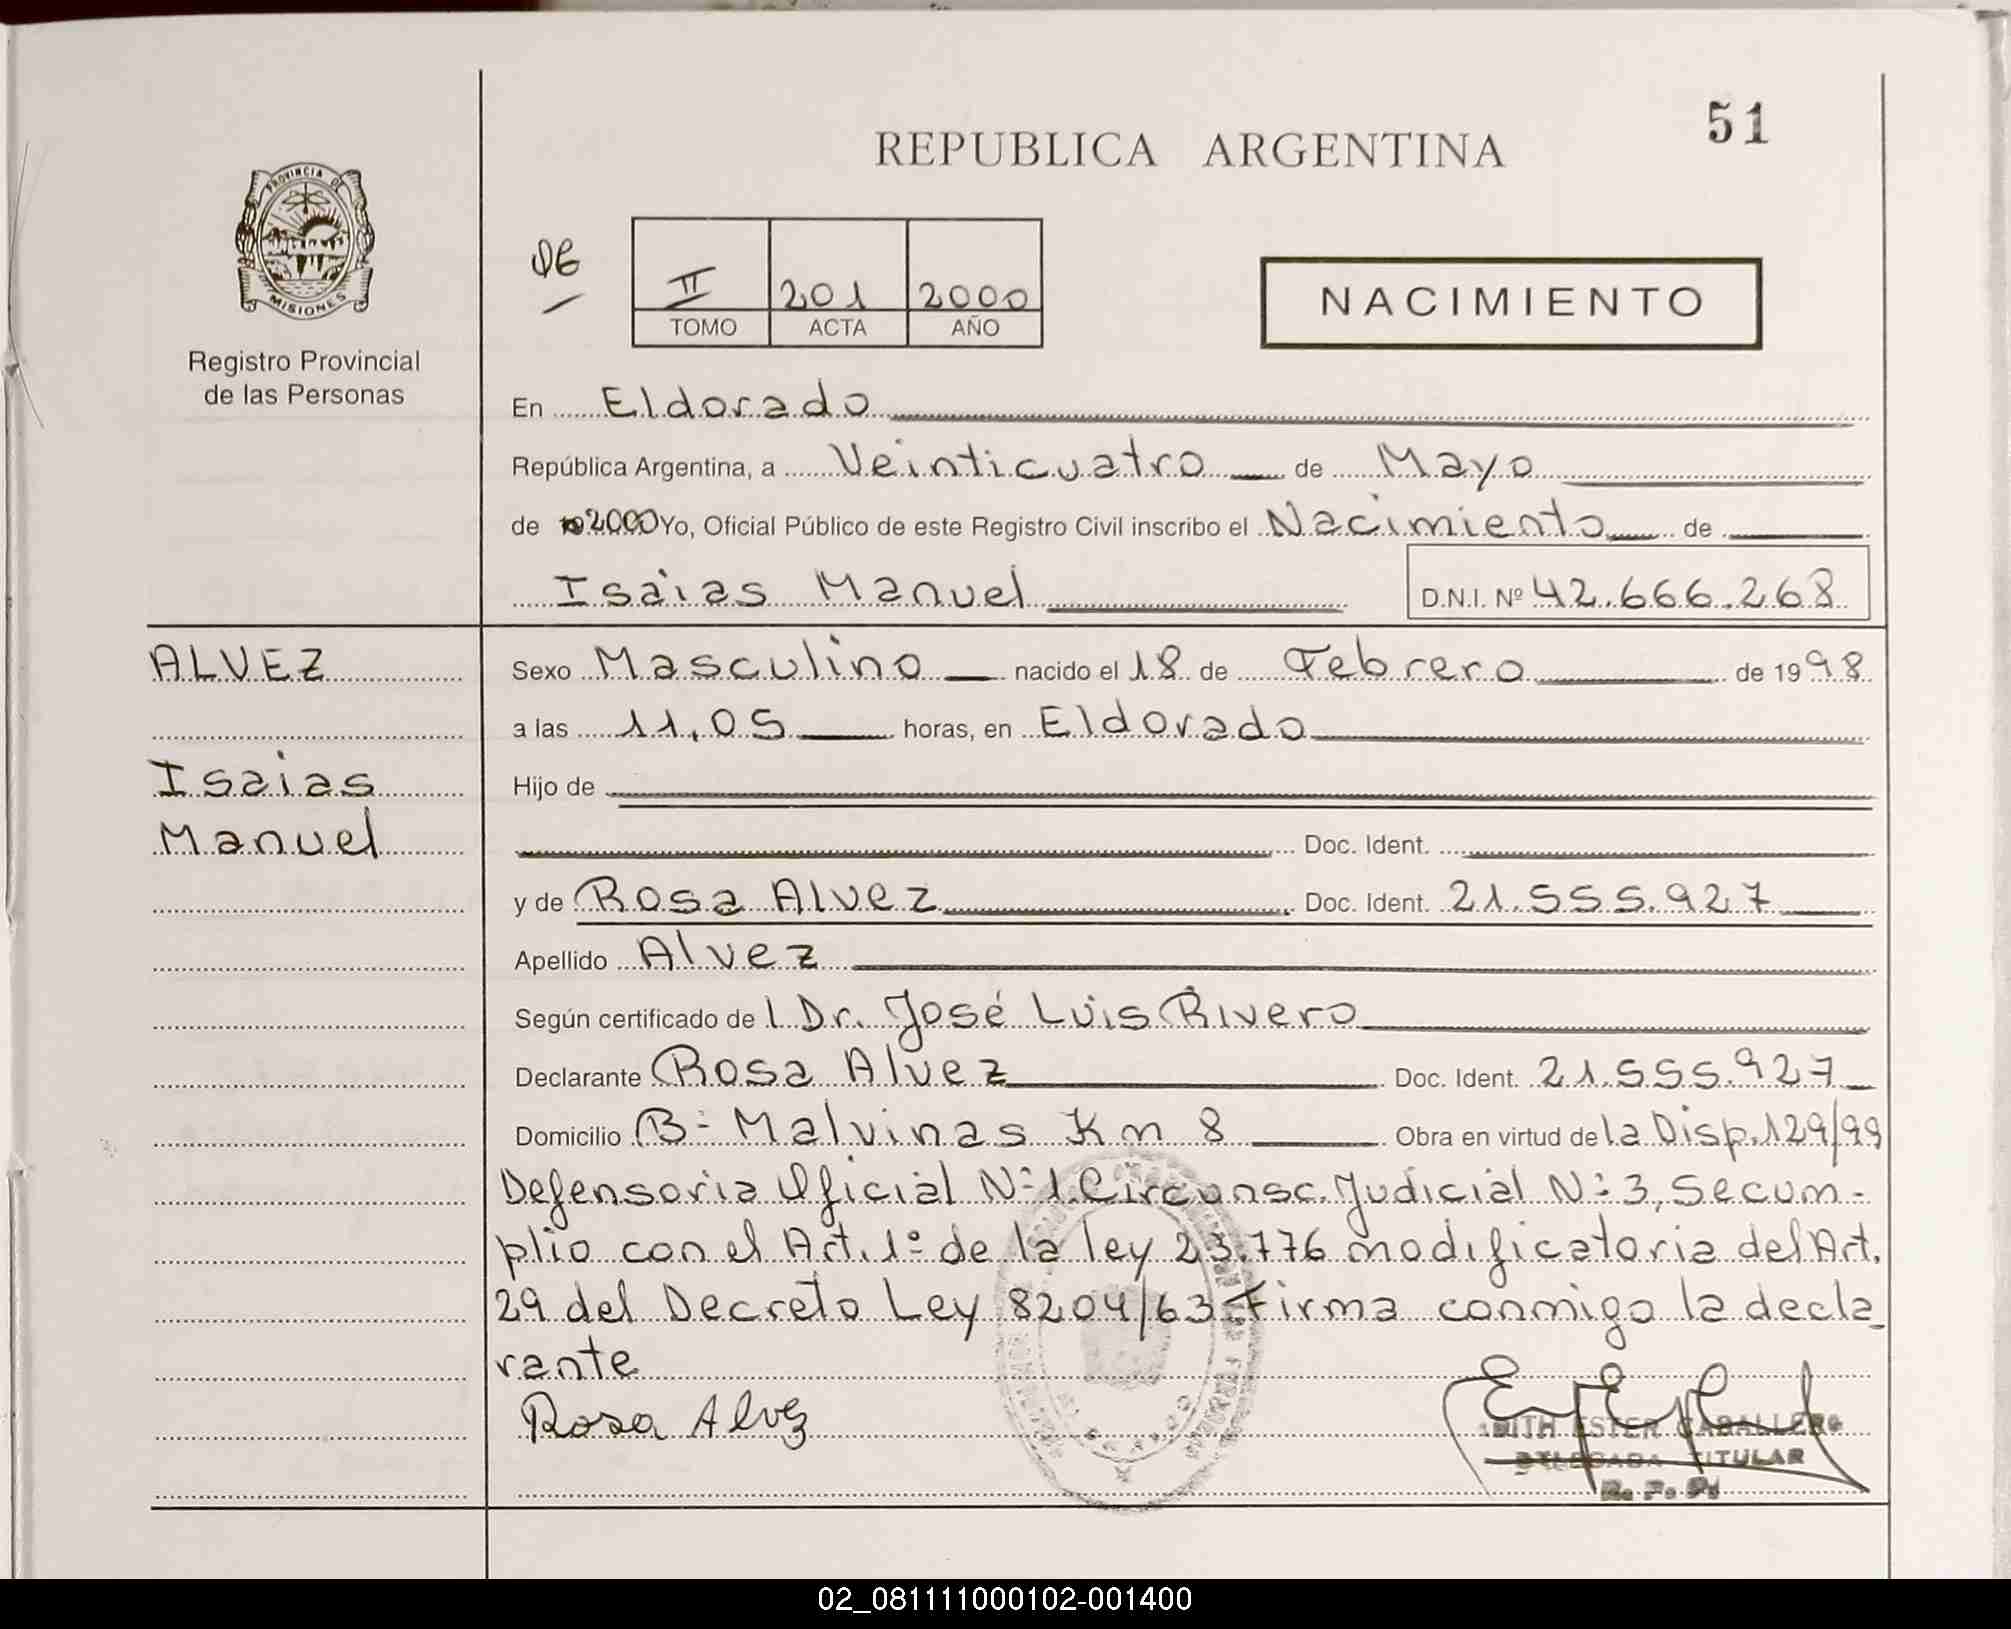 51
REPUBLICA ARGENTINA
PROVINCIA DE
MISIONES
Registro Provincial
de las Personas
II 201 2000
TOMO ACTA AÑO
NACIMIENTO
En Eldorado
República Argentina, a Veinticuatro de Mayo
de 2000 Yo, Oficial Público de este Registro Civil inscribo el Nacimiento de
Isaias Manuel D.N.I. Nº 42.666.268
ALVEZ
Isaias
Manuel
Sexo Masculino nacido el 18 de Febrero de 1998
a las 11,05 horas, en Eldorado
Hijo de
Doc. Ident.
y de Rosa Alvez Doc. Ident. 21.555.927
Apellido Alvez
Según certificado de l Dr. José Luis Rivero
Declarante Rosa Alvez Doc. Ident. 21.555.927
Domicilio Bº Malvinas Km 8 Obra en virtud de la Disp. 129/99
Defensoria Oficial Nº 1 Circunsc. Judicial Nº 3, Se cum-
plio con el Art. 1º de la ley 23.776 modificatoria del Art.
29 del Decreto Ley 8204/63 Firma conmigo la decla_
rante
Rosa Alvez
ESTER CABALLERO
DELEGADA TITULAR
R. P. P.
02_081111000102-001400